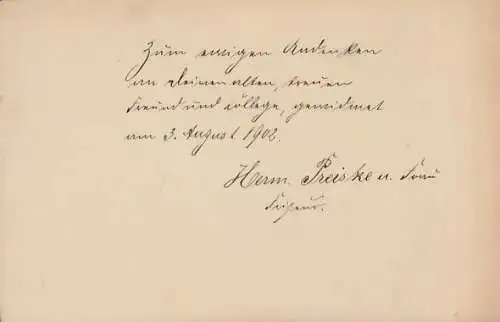 Zum ewigen Andenken
an Deinen alten, treuen
Freund und College, gewidmet
am 3. August 1902.
Herm. Preiske u. Frau